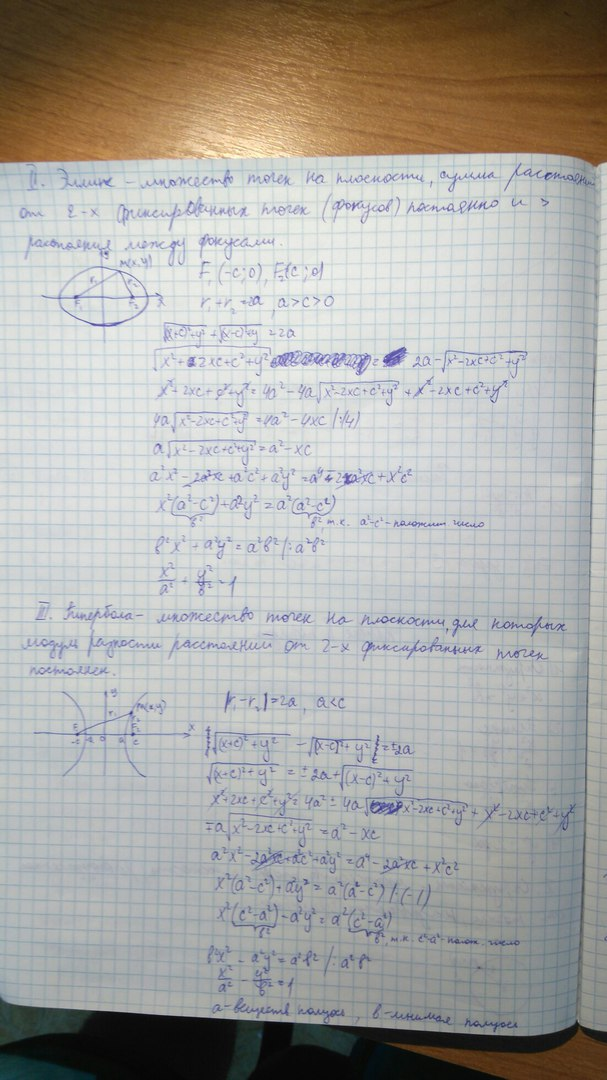 II. Эллипс - множество точек на плоскости, сумма расстояний
от 2-х фиксированных точек (фокусов) постоянно и >
расстояния между фокусами.
M(x,y)
r₁ r₂
F₁ F₂ x
F₁(-c;0), F₂(c;0)
r₁+r₂=2a, a>c>0
√(x+c)²+y² + √(x-c)²+y² = 2a
√x²+2xc+c²+y² = 2a-√x²-2xc+c²+y²
x²+2xc+c²+y²=4a²-4a√x²-2xc+c²+y² + x²-2xc+c²+y²
4a√x²-2xc+c²+y²=4a²-4xc |:(4)
a√x²-2xc+c²+y²=a²-xc
a²x²-2a²xc+a²c²+a²y²=a⁴-2a²xc+x²c²
x²(a²-c²)+a²y²=a²(a²-c²)
b² b², т.к. a²-c²-положит число
b²x²+a²y²=a²b² |:a²b²
x²/a² + y²/b² = 1
III. Гипербола - множество точек на плоскости, для которых
модуль разности расстояний от 2-х фиксированных точек
постоянен.
y M(x,y)
r₁ r₂
F₁ F₂ x
-c -a 0 a c
|r₁-r₂|=2a, a<c
√(x+c)²+y² - √(x-c)²+y² = ±2a
√(x+c)²+y² = ±2a+√(x-c)²+y²
x²+2xc+c²+y²=4a²±4a√x²-2xc+c²+y² + x²-2xc+c²+y²
∓a√x²-2xc+c²+y²=a²-xc
a²x²-2a²xc+a²c²+a²y²=a⁴-2a²xc+x²c²
x²(a²-c²)+a²y²=a²(a²-c²) |·(-1)
x²(c²-a²)-a²y²=a²(c²-a²)
b² b², т.к. c²-a²-полож. число
b²x²-a²y²=a²b² |:a²b²
x²/a² - y²/b² = 1
a-веществ полуось, b-мнимая полуось